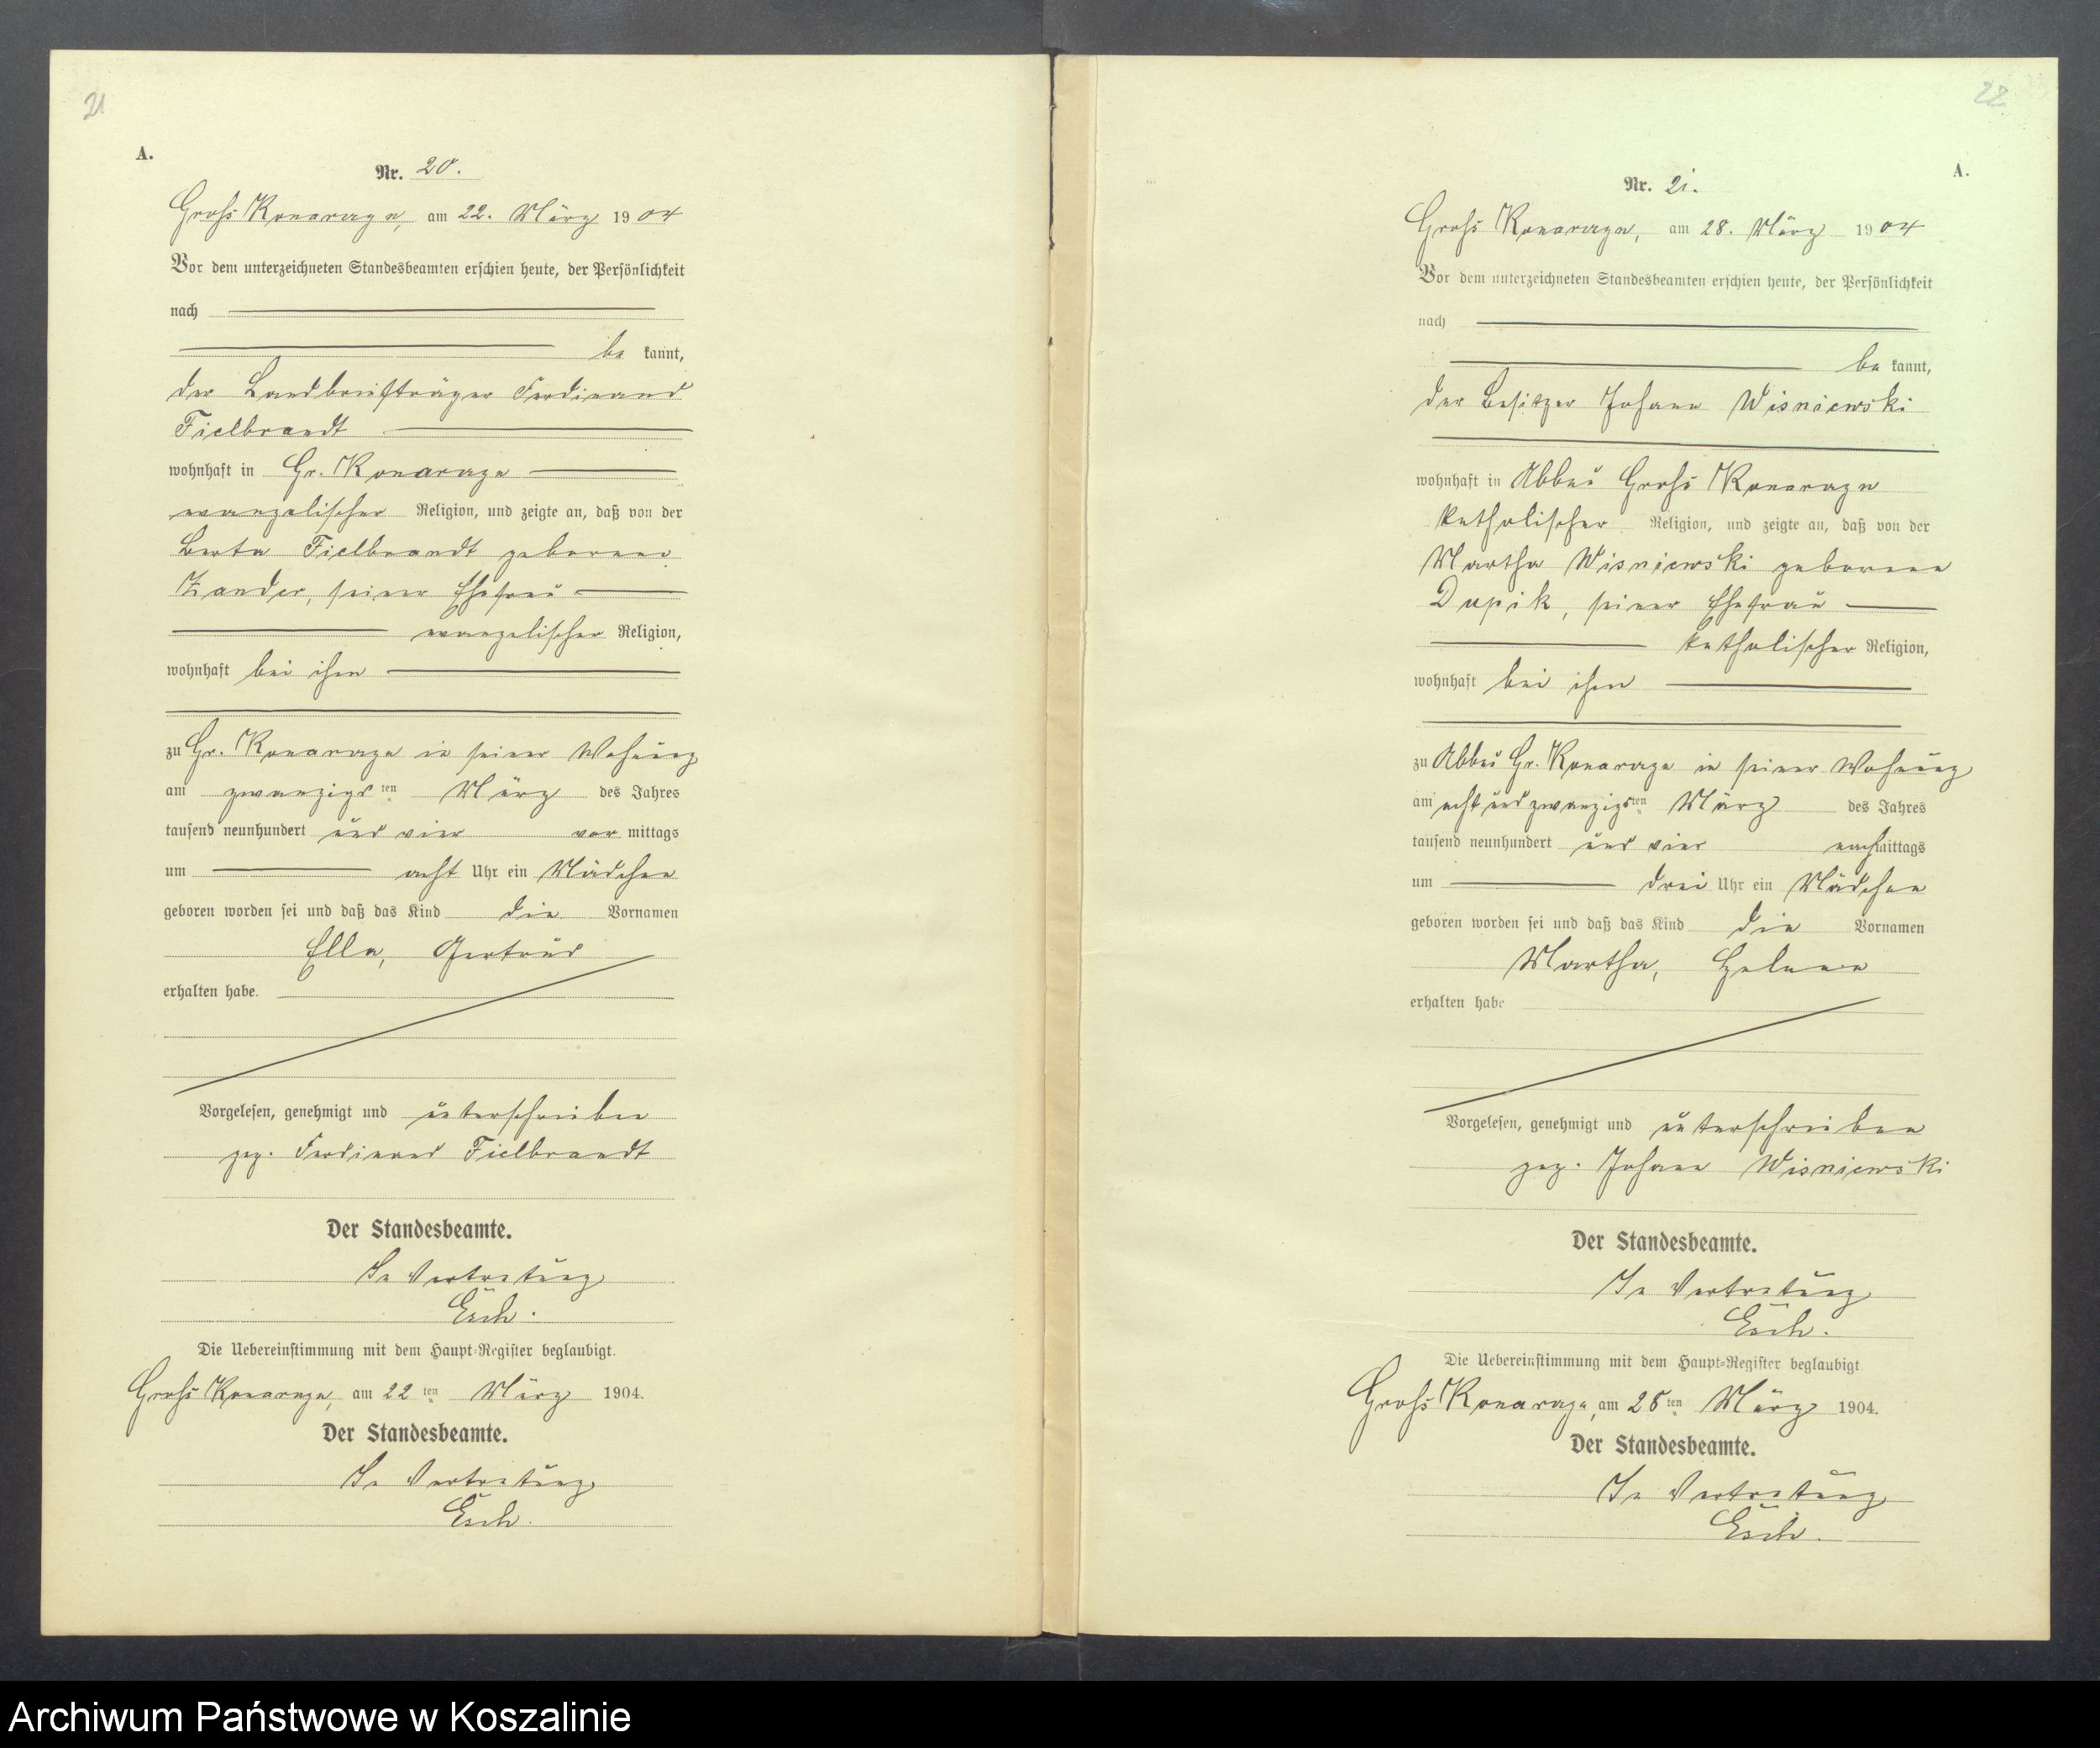 21
A.
Nr. 20.
Gross Konarczyn, am 22. März 1904
Vor dem unterzeichneten Standesbeamten erschien heute, der Persönlichkeit
nach
be kannt,
der Landbriefträger Ferdinand
Fielbrandt
wohnhaft in Gr. Konarczyn
evangelischer Religion, und zeigte an, daß von der
Berta Fielbrandt geborenen
Zander, seiner Ehefrau
evangelischer Religion,
wohnhaft bei ihm
zu Gr. Konarczyn in seiner Wohnung
am zwanzigsten März des Jahres
tausend neunhundert und vier vor mittags
um acht Uhr ein Mädchen
geboren worden sei und daß das Kind die Vornamen
Ella, Gertrud
erhalten habe.
Vorgelesen, genehmigt und unterschrieben
gez. Ferdinand Fielbrandt
Der Standesbeamte.
In Vertretung
Esch.
Die Uebereinstimmung mit dem Haupt-Register beglaubigt.
Gross Konarczyn, am 22ten März 1904.
Der Standesbeamte.
In Vertretung
Esch.
22
A.
Nr. 21.
Gross Konarczyn, am 28. März 1904
Vor dem unterzeichneten Standesbeamten erschien heute, der Persönlichkeit
nach
be kannt,
der Besitzer Johann Wisniewski
wohnhaft in Abbau Gross Konarczyn
katholischer Religion, und zeigte an, daß von der
Martha Wisniewski geborenen
seiner Ehefrau
katholischer Religion,
wohnhaft bei ihm
zu Abbau Gr. Konarczyn in seiner Wohnung
am acht und zwanzigsten März des Jahres
tausend neunhundert und vier nachmittags
um drei Uhr ein Mädchen
geboren worden sei und daß das Kind die Vornamen
Martha, Helene
erhalten habe
Vorgelesen, genehmigt und unterschrieben
gez. Johann Wisniewski
Der Standesbeamte.
In Vertretung
Esch.
Die Uebereinstimmung mit dem Haupt-Register beglaubigt
Gross Konarczyn, am 28ten März 1904.
Der Standesbeamte.
In Vertretung
Esch.
Archiwum Państwowe w Koszalinie